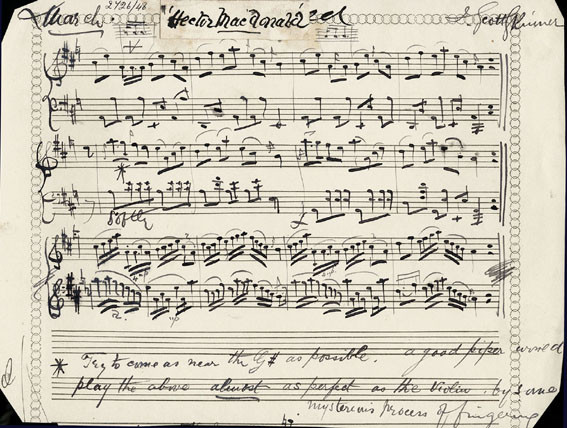 March. 2726/46 "Hector MacDonald" J. Scott Skinner
Softly
* Try to come as near the G# as possible. a good piper would
play the above almost as perfect as the Violin. by some
mysterious process of fingering